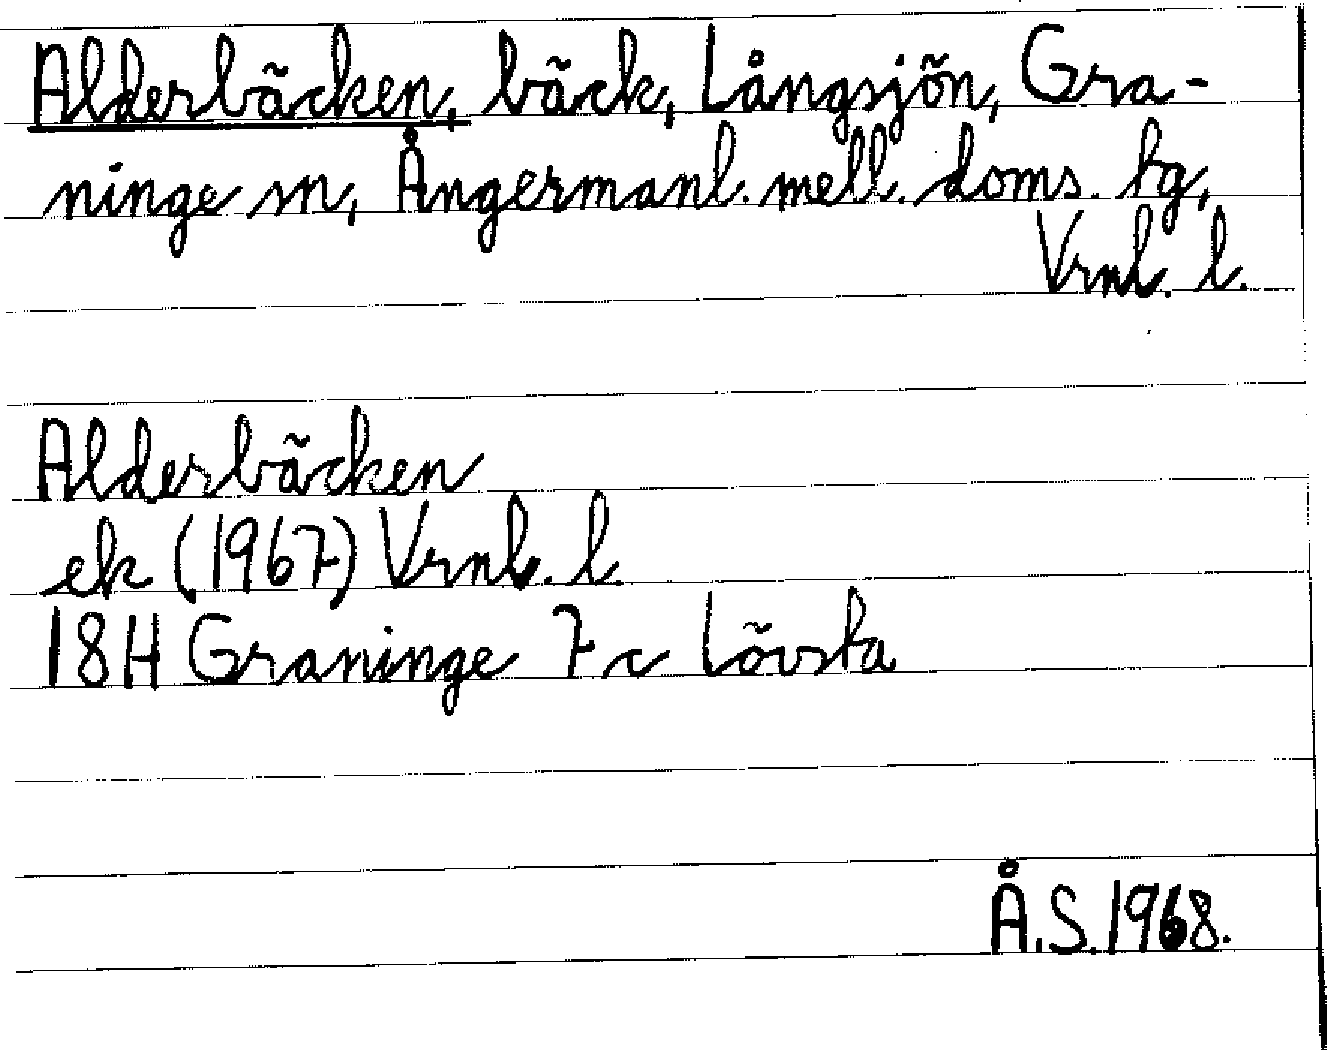 Alderbäcken, bäck, Långsjön, Gra-
ninge sn, Ångermanl. mell. doms. tg,
Vrnl. l.
Alderbäcken
ek (1967) Vrnl. l.
18H Graninge 7 c Lövsta
Å.S. 1968.